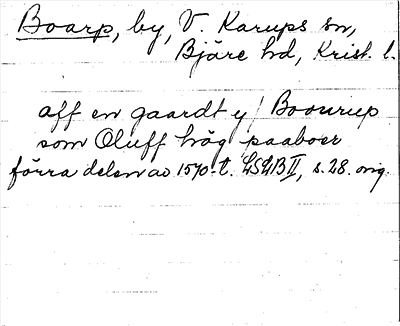 Boarp, by, V. Karups sn,
Bjäre hd, Krist. l.
aff en gaardt y / Boourup
som Oluff hög paaboer
förra delen av 1570-t. LSÄB II, s. 28. orig.